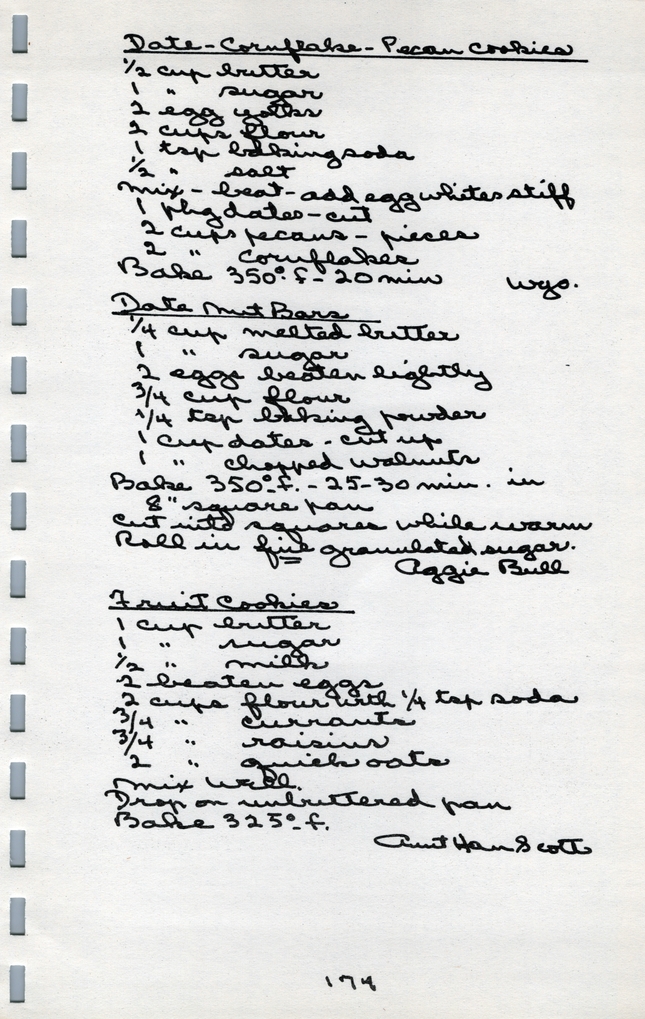 Date-Cornflake-Pecan Cookies
1/2 cup butter
1 " sugar
2 egg yolks
2 cups flour
1 tsp baking soda
1/2 " salt
mix - beat - add egg whites stiff
1 pkg dates - cut
2 cups pecans - pieces
2 " cornflakes
Bake 350° f - 20 min Wyo.
Date Nut Bars
1/4 cup melted butter
1 " sugar
2 eggs beaten lightly
3/4 cup flour
1/4 tsp baking powder
1 cup dates - cut up
1 " chopped walnuts
Bake 350° f. - 25-30 min. in
8" square pan
Cut into squares while warm
Roll in fine granulated sugar.
Aggie Bull
Fruit Cookies
1 cup butter
1 " sugar
1/2 " milk
2 beaten eggs
2 cups flour with 1/4 tsp soda
3/4 " currants
3/4 " raisins
2 " quick oats
Mix well.
Drop on unbuttered pan
Bake 325° f.
Aunt Han Scott
174